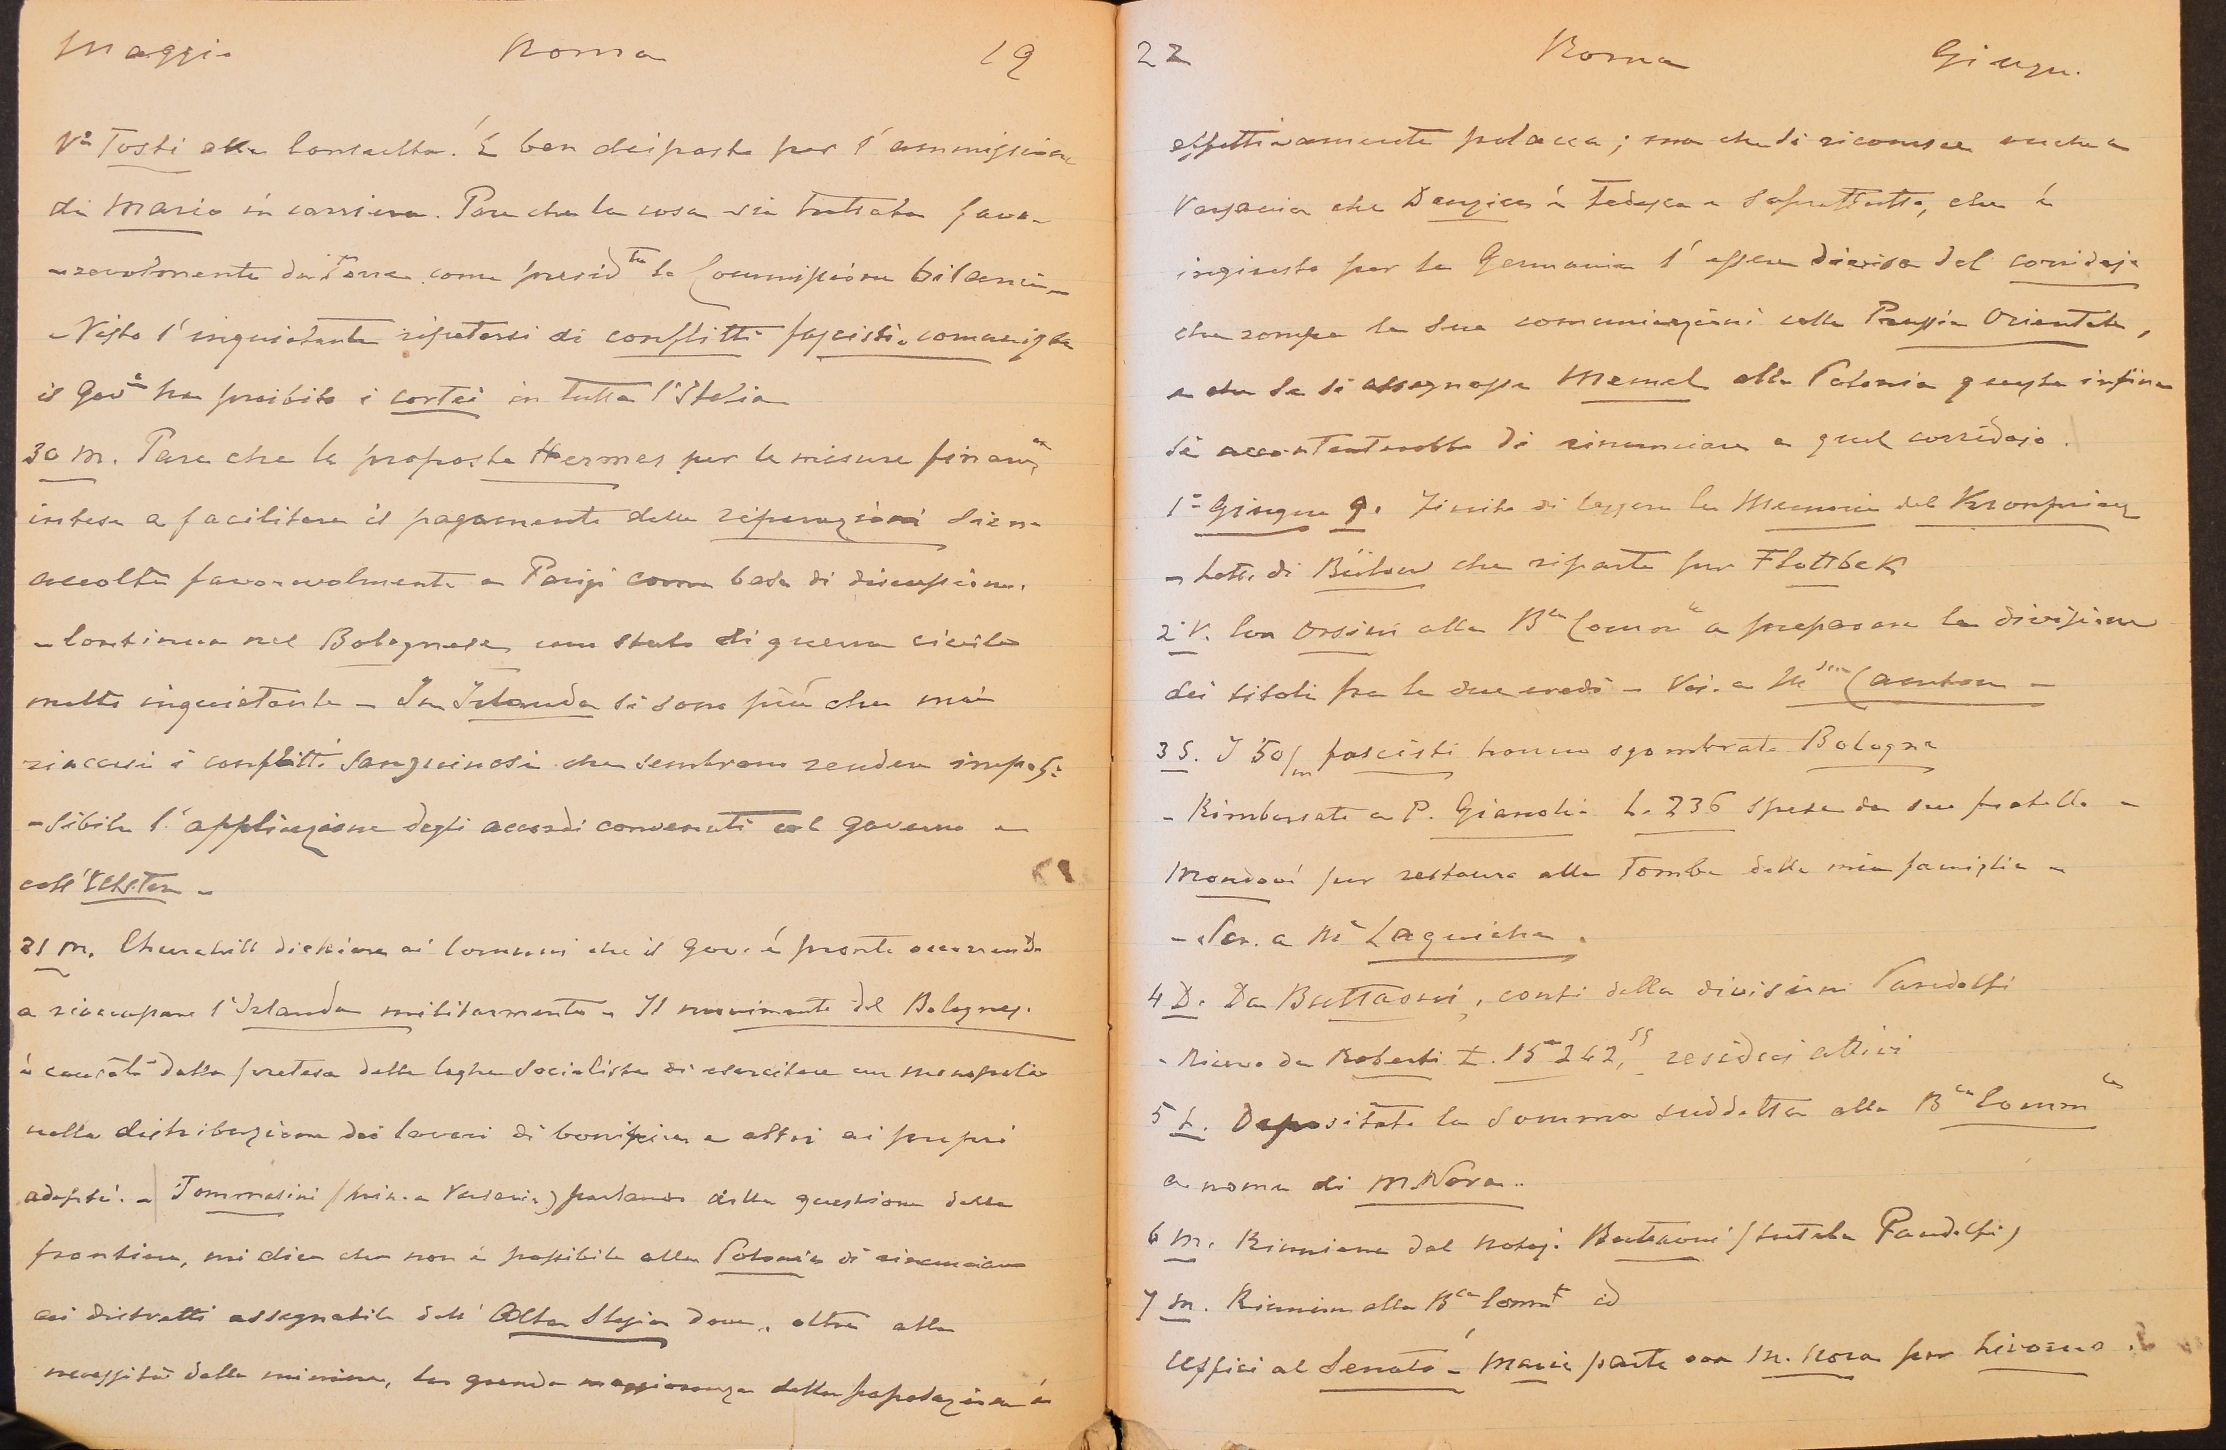 Maggio Roma 19
Vo Tosti alla Consulta. È ben disposto per l'ammissione
di Mario in carriera. Pare che la cosa sia trattata favo-
-revolmente da Torre come presidte la Commissione bilancio -
- Visto l'inquietante ripetersi di conflitti fascisti-comunisti
il Govo ha proibito i cortei in tutta l'Italia
30 M. Pare che le proposte Hermes per le misure finanze
intese a facilitare il pagamento delle riparazioni siano
accolte favorevolmente a Parigi come base di discussione.
- Continua nel Bolognese uno stato di guerra civile
molto inquietante - In Irlanda si sono più che mai
riaccesi i conflitti sanguinosi che sembrano rendere impos-
-sibile l'applicazione degli accordi convenuti col governo e
coll'Ulster -
31 M. Churchill dichiara ai Comuni che il Gov. è pronto occorrendo
a rioccupare l'Irlanda militarmente - Il movimento del Bolognes.
è causato dalla pretesa delle leghe socialiste di esercitare un monopolio
nella distribuzione dei lavori di bonifica e altri ai propri
adepti. - Tommasini (min. a Varsavia) parlando della questione della
frontiera, mi dice che non è possibile alla Polonia di rinunciare
ai distretti assegnatile dell'Alta Slesia dove, oltre alla
necessità delle miniere, la grande maggioranza della popolazione è
22 Roma Giugn.
effettivamente polacca; ma che si riconosce anche a
Varsavia che Danzica è tedesca e soprattutto, che è
ingiusto per la Germania l'essere divisa dal corridoio
che rompe le sue comunicazioni colla Prussia Orientale,
e che se si assegnasse Memel alla Polonia questa infine
si accontenterebbe di rinunciare a quel corridoio.
1o Giugno g. Finito di leggere le Memorie del Kronprinz
- Lett. di Bülow che riparte per Flottbek
2 V. Con Orsini alla Bca Comme a preparare la divisione
dei titoli fra le due eredi -
3 S. I 50/m fascisti hanno sgombrato Bologna
- Rimborsate a P. Gianoli L. 236 spese da suo fratello a
Mondovì per restauro alla Tomba della mia famiglia -
- Scr. a Me Laguiche.
4 D. Da Buttaoni, conti della divisione Pandolfi
- Ricevo da Roberti L. 15242,55 residui attivi
5 L. Depositata la somma suddetta alla Bca Comm le
a nome di M. Nora..
6 M. Riunione dal notaj. Buttaoni (tutela Pandolfi)
7 M. Riunione alla Bca Commle id
Uffici al Senato - Mario parte con M. Nora per Livorno.